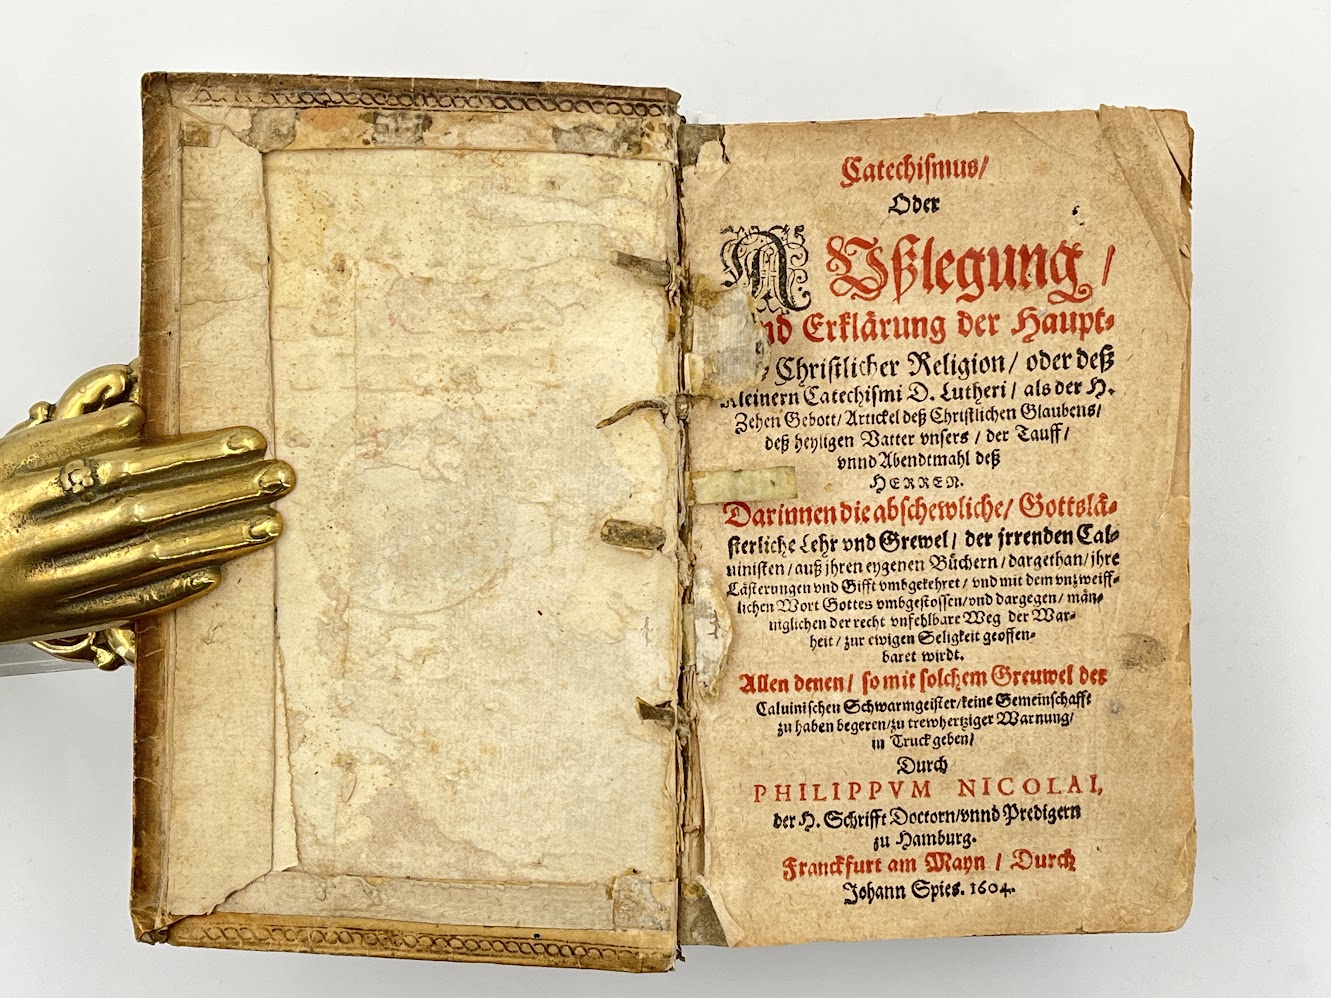 Catechismus/
Oder
AUßlegung/
nd Erklärung der Haupt-
Christlicher Religion/ oder deß
kleinern Catechismi D. Lutheri/ als der H.
Zehen Gebott/ Artickel deß Christlichen Glaubens/
deß heyligen Vatter vnsers/ der Tauff/
vnnd Abendtmahl deß
HERREN.
Darinnen die abschewliche/ Gottslä-
sterliche Lehr vnd Grewel/ der jrrenden Cal-
uinisten/ auß jhren eygenen Büchern/ dargethan/ jhre
Lästerungen vnd Gifft vmbgekehret/ vnd mit dem vnzweiff-
lichen Wort Gottes vmbgestossen/ vnd dargegen/ män-
niglichen der recht vnfehlbare Weg der War-
heit/ zur ewigen Seligkeit geoffen-
baret wirdt.
Allen denen/ so mit solchem Greuwel der
Caluinischen Schwarmgeister/ keine Gemeinschafft
zu haben begeren/ zu trewhertziger Warnung/
in Truck geben/
Durch
PHILIPPVM NICOLAI,
der H. Schrifft Doctorn/ vnnd Predigern
zu Hamburg.
Franckfurt am Mayn/ Durch
Johann Spies. 1604.